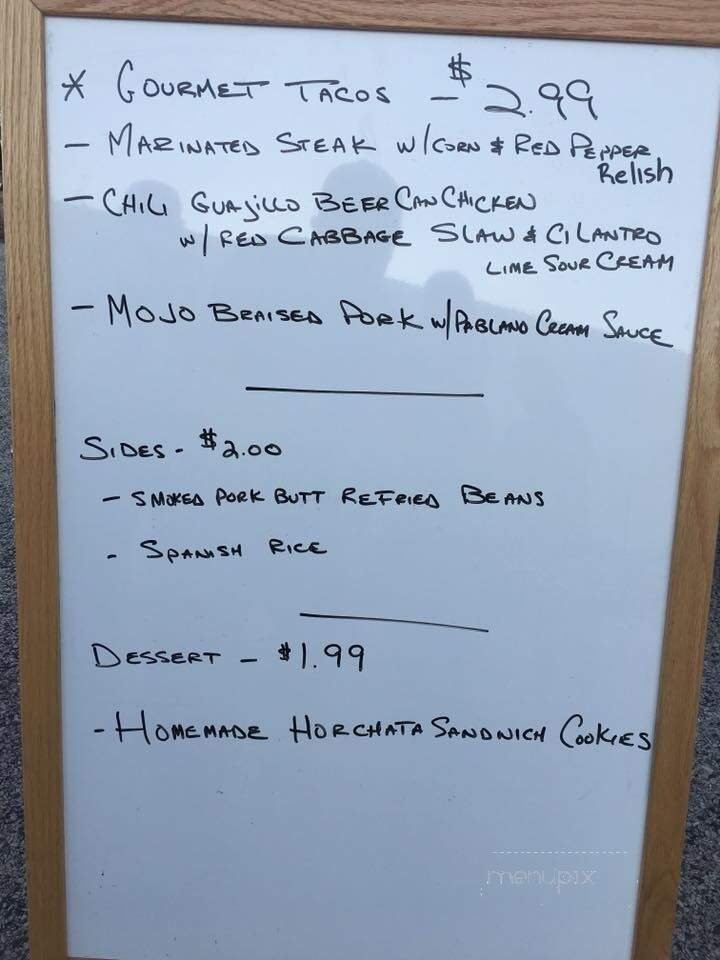 * GOURMET TACOS - $2.99
- MARINATED STEAK W/CORN & RED PEPPER
Relish
- CHILI GUAJILLO BEER CAN CHICKEN
W/ RED CABBAGE SLAW & CILANTRO
LIME SOUR CREAM
- MOJO BRAISED PORK W/PABLANO CREAM SAUCE
SIDES - $2.00
- SMOKED PORK BUTT REFRIED BEANS
- SPANISH RICE
DESSERT - $1.99
- HOMEMADE HORCHATA SANDWICH COOKIES
menupix